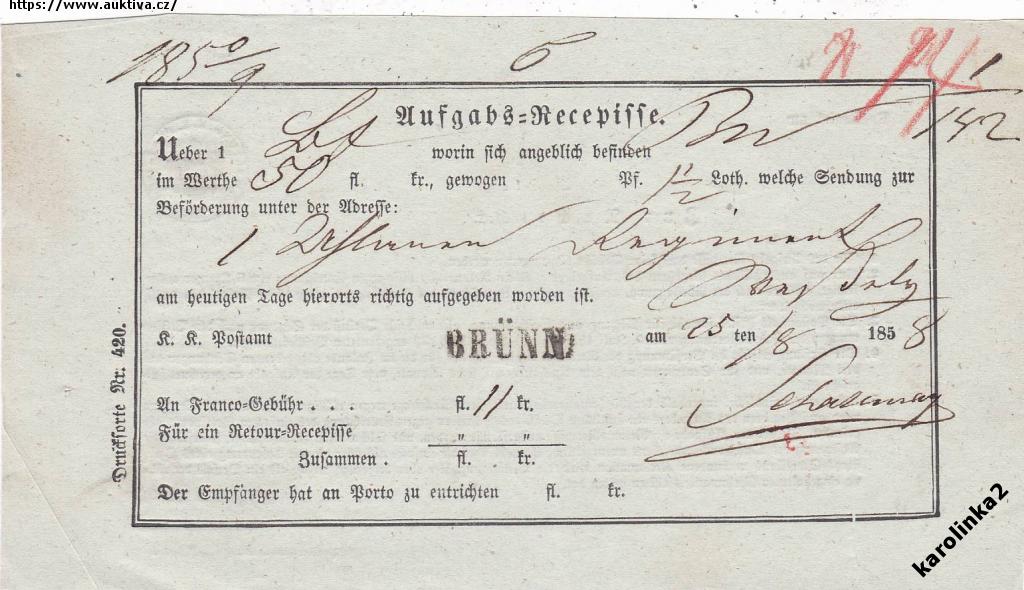 https://www.auktiva.cz/
1850/9 6 1/142
Aufgabs=Recepisse.
Ueber 1 Bf worin sich angeblich befinden Bn
im Werthe 50 fl. kr., gewogen Pf. 1 1/2 Loth. welche Sendung zur
Beförderung unter der Adresse:
1 Uhlanen Regiment
am heutigen Tage hierorts richtig aufgegeben worden ist.
K. K. Postamt BRÜNN am 25 ten /8 1858
An Franco=Gebühr . . . fl. 11 kr.
Für ein Retour=Recepisse " "
Zusammen . fl. kr.
Der Empfänger hat an Porto zu entrichten fl. kr.
Drucksorte Nr. 420.
karolinka2